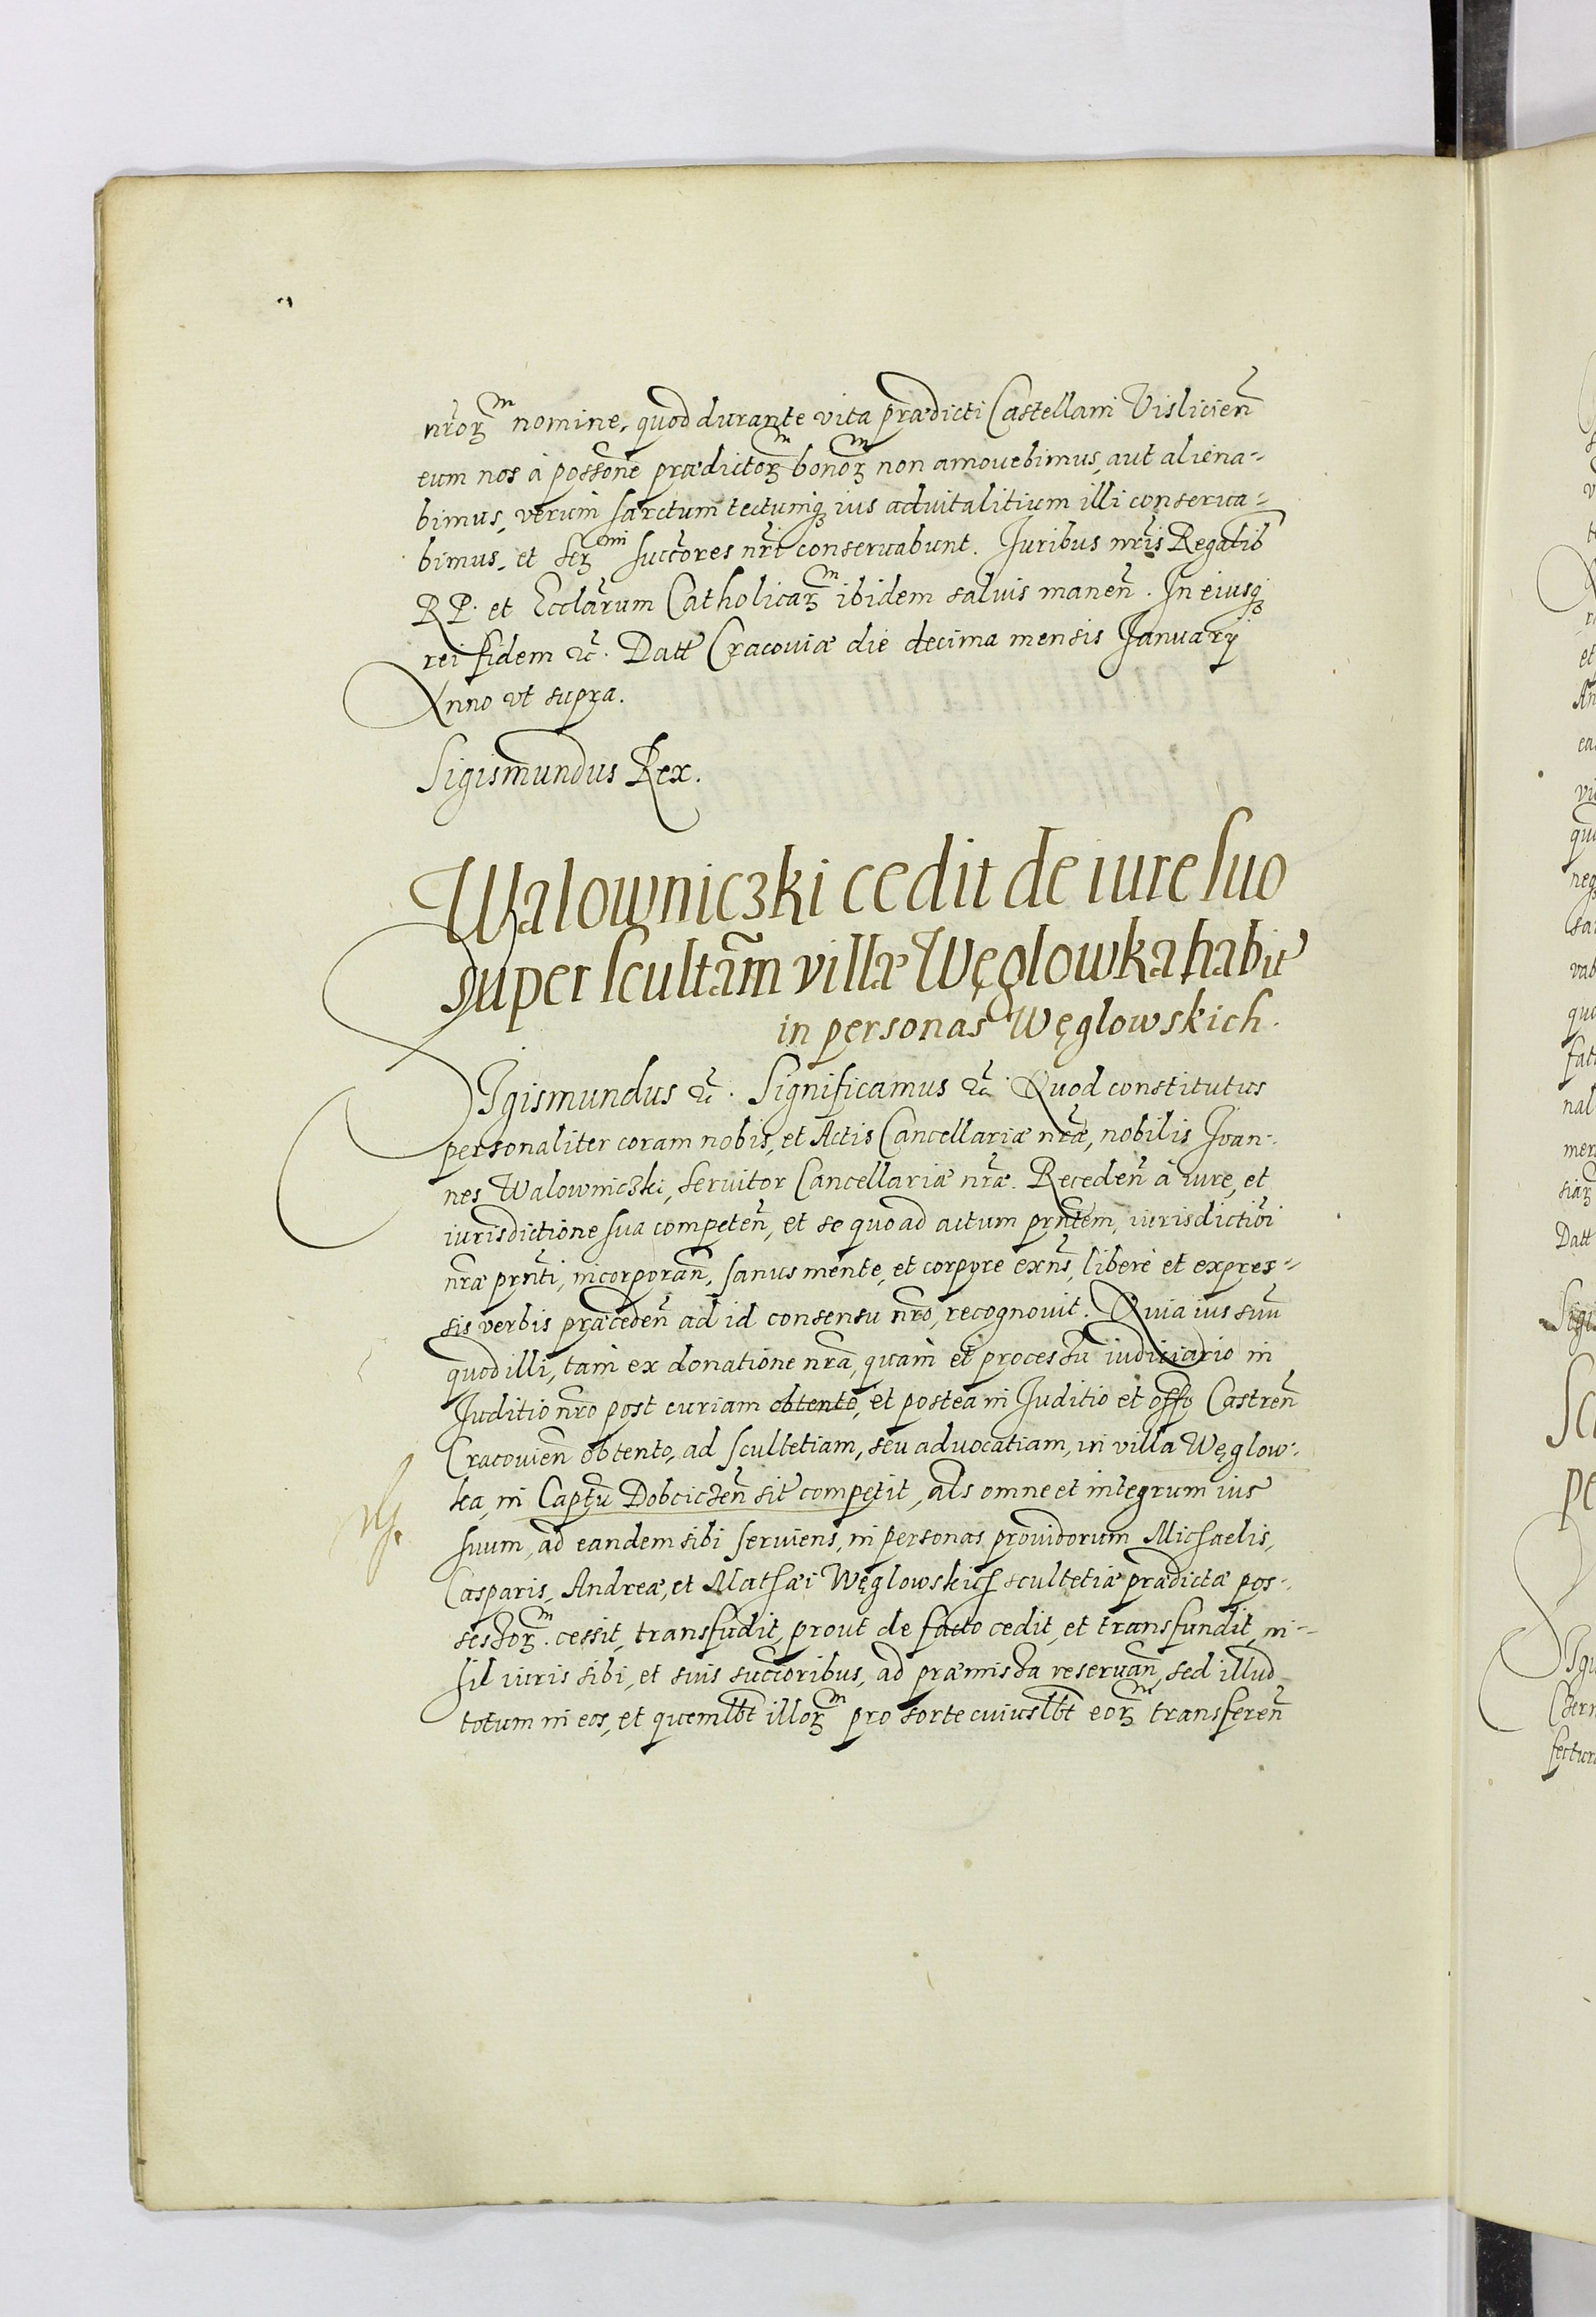 nr̃orꝫ^m nomine, quod durante vita prædicti Castellani Vislicień
eum nos à possone prædictorꝫ^m bonorꝫ^m non amouebimus, aut aliena-
bimus, verum sarctum tectumqꝫ ius aduitalitium illi conserua-
bimus, et serꝫ^mi succõres nr̃i conseruabunt. Iuribus nr̃is Regalib
R P. et Ecclãrum Catholicarꝫ^m ibidem saluis maneñ. In eiusqꝫ
rei fidem ꝛc̃. Datt Cracouiæ die decima mensis Ianuarij
Anno vt supra.
Sigismundus Rex.
Walowniczki cedit de iure suo
super scultãm villæ Węglowka habit
in personas Węglowskich.
SIgismundus ꝛc̃. Significamus ꝛc̃. Quod constitutus
personaliter coram nobis, et Actis Cancellariæ nr̃æ, nobilis Ioan-
nes Walowniczki, seruitor Cancellariæ nr̃æ. Recedeñ à iure, et
iurisdictione sua competeñ, et se quo ad actum prñtem, iurisdictiõi
nr̃æ prñti, incorporañ, sanus mente, et corpore exñs, liberè et expres-
sis verbis præcedeñ ad id consensu nr̃o, recognouit. Quia ius suũ
quod illi, tam ex donatione nr̃a, quam et processu iudiciario in
Iuditio nr̃o post curiam obtento, et postea in Iuditio et offo Castreñ
Cracouień obtento, ad scultetiam, seu aduocatiam, in villa Węglow-
ka, in Captũ Dobcicseñ sit competit, als omne et integrum ius
suum, ad eandem sibi seruiens, in personas prouidorum Michaelis,
Casparis, Andreæ, et Mathæi Węglowskich scultetiæ prædictæ pos-
sessorꝫ^m. cessit, transfudit, prout de facto cedit, et transfundit, ni-
hil iuris sibi, et suis succõribus, ad præmissa reseruañ, sed illud
totum in eos, et quemlbt illorꝫ^m pro sorte cuiuslbt eorꝫ^m transfereñ